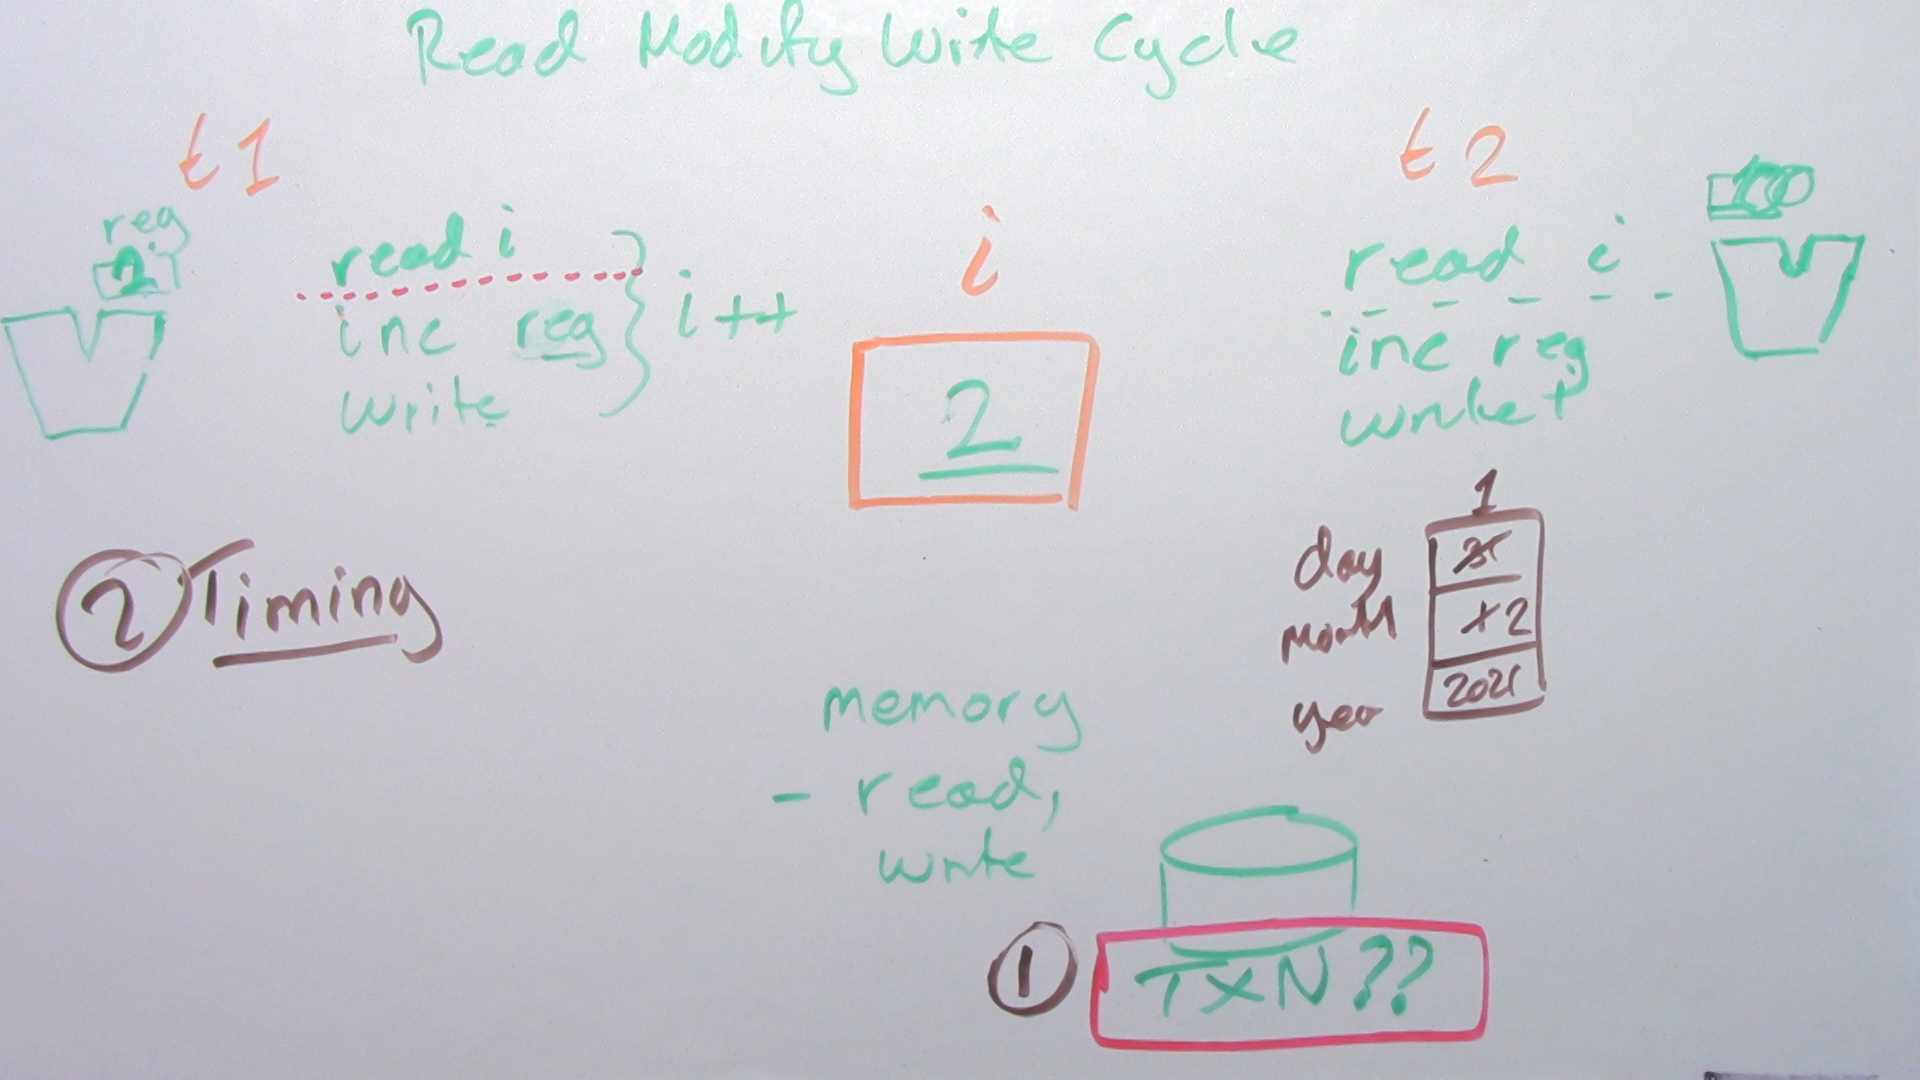 Read Modify Write Cycle
t1
t2
reg
2
read i
inc reg
write
i++
i
2
read i
inc reg
write
1
day
month 2
year 2021
2 Timing
memory
- read,
write
1 TXN??